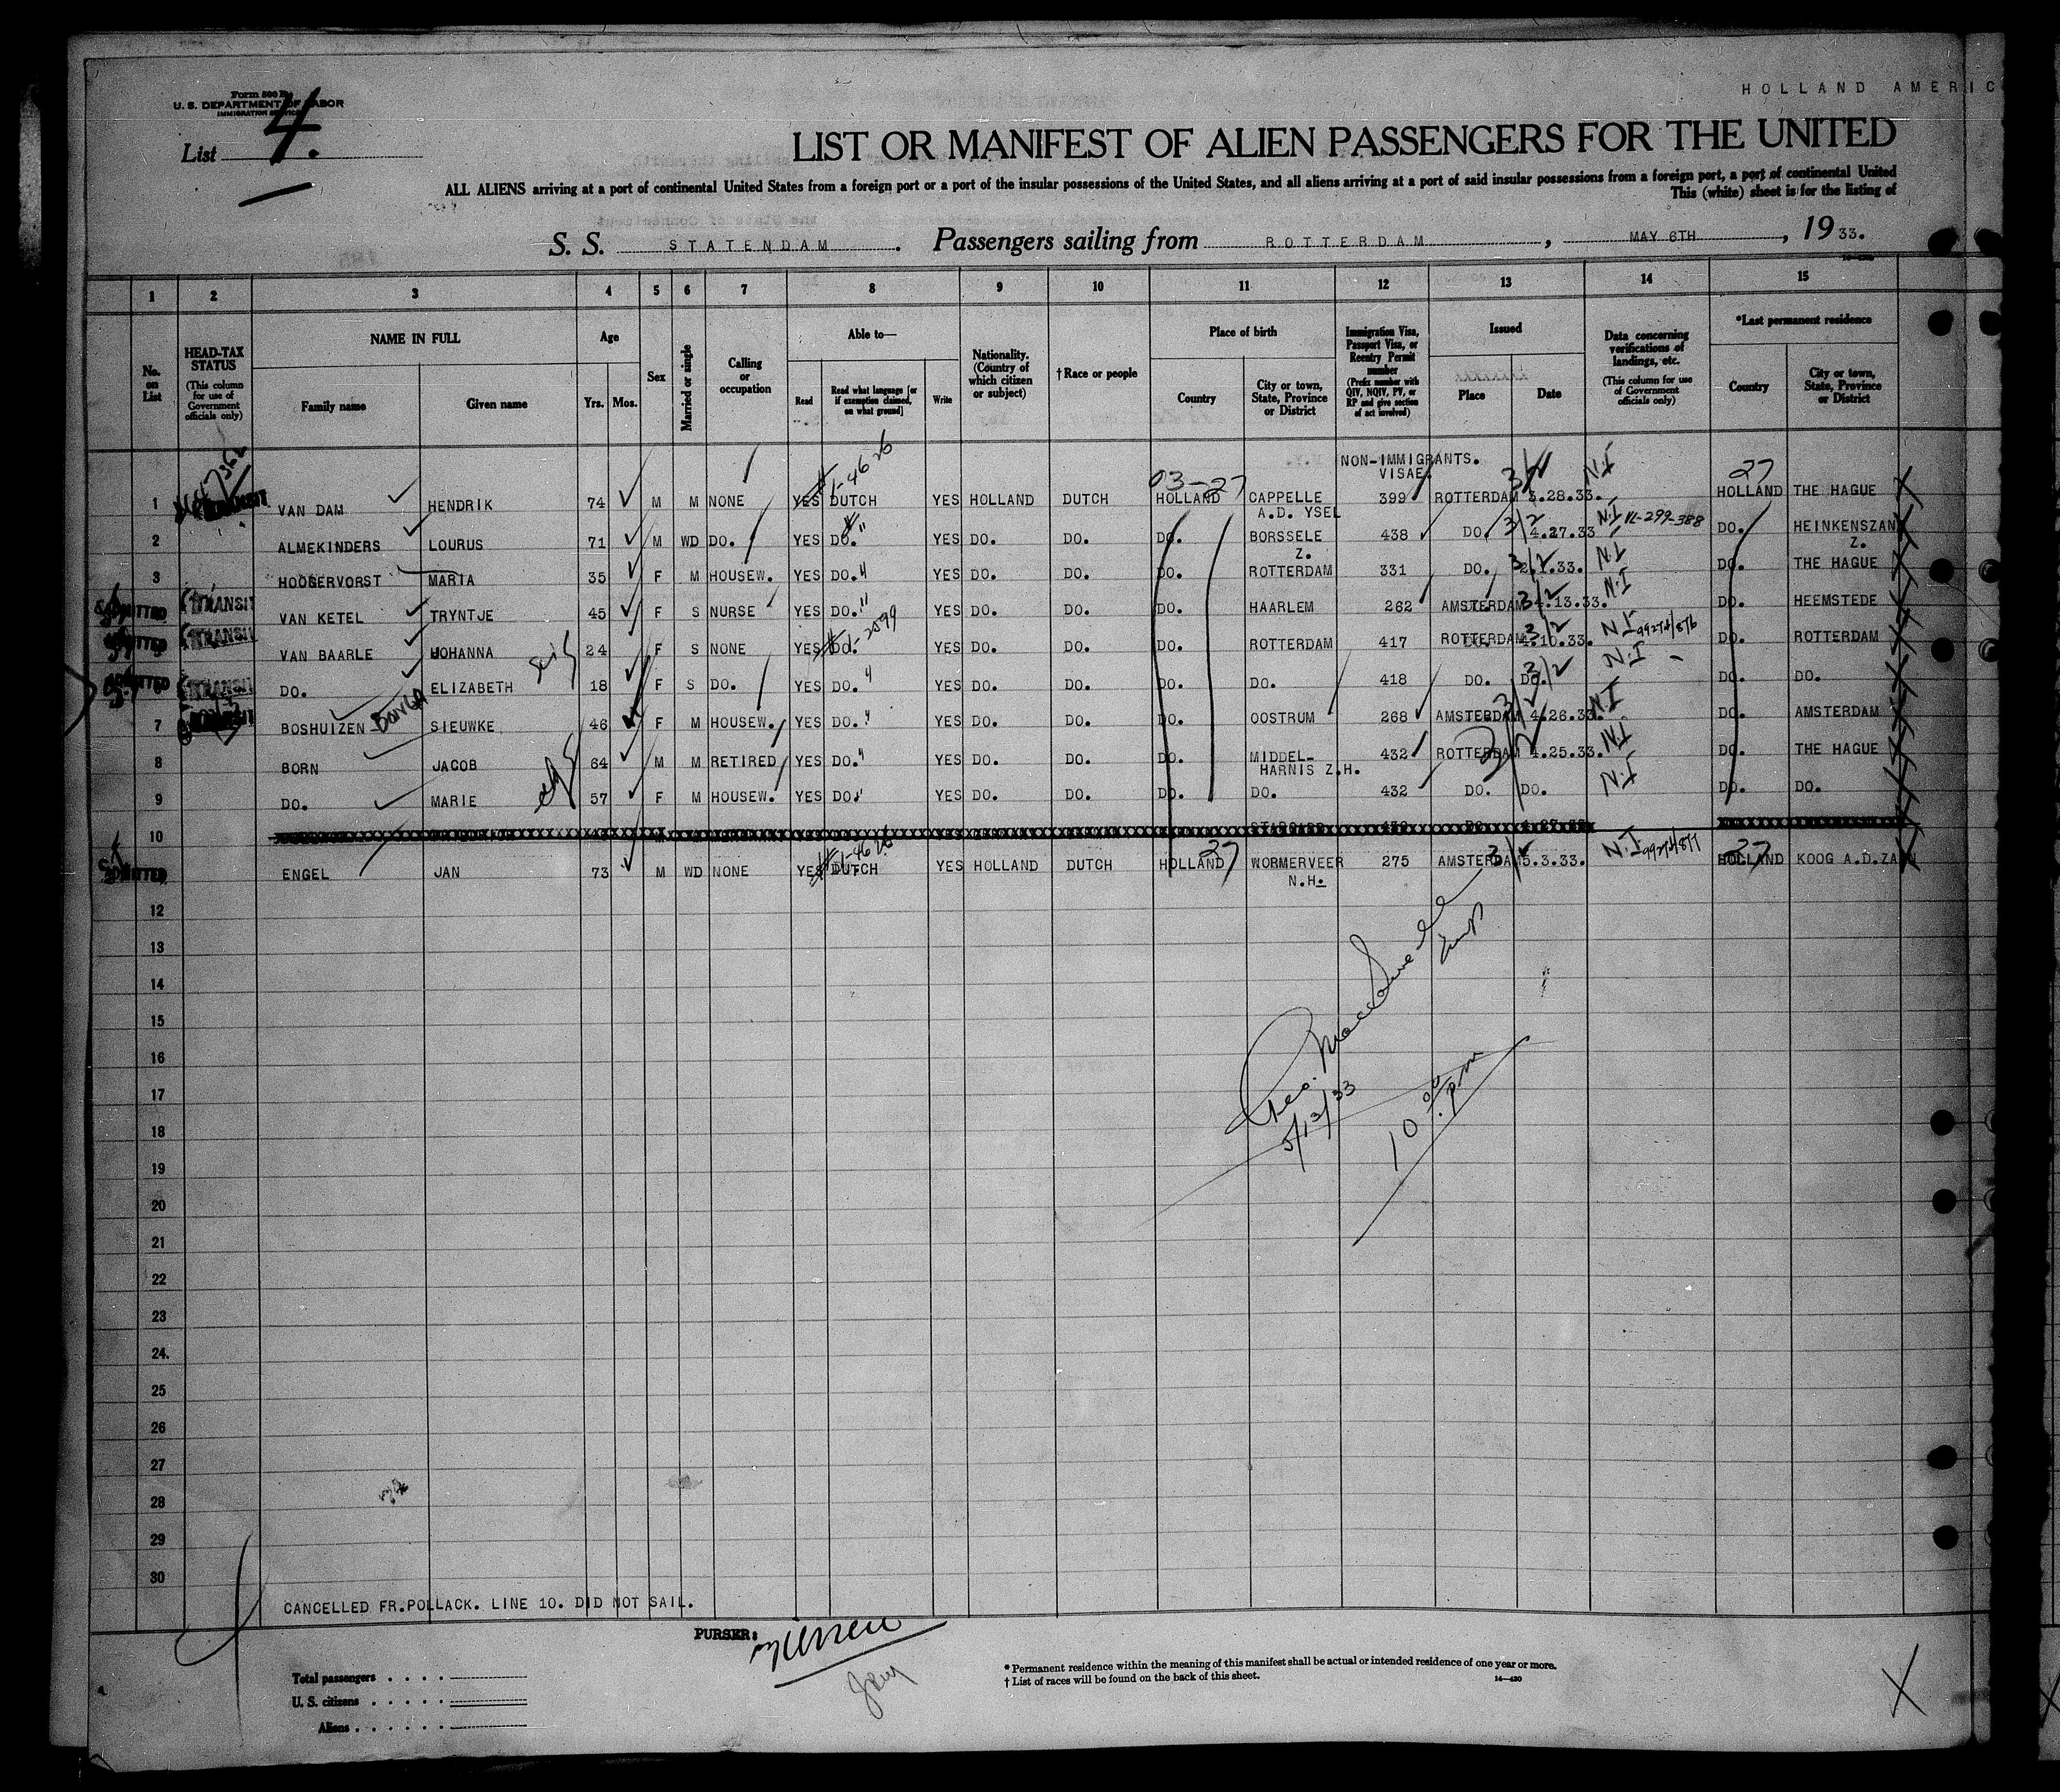 HOLLAND AMERIC
Form 500 B
U. S. DEPARTMENT OF LABOR
IMMIGRATION SERVICE
List 4.
LIST OR MANIFEST OF ALIEN PASSENGERS FOR THE UNITED
ALL ALIENS arriving at a port of continental United States from a foreign port or a port of the insular possessions of the United States, and all aliens arriving at a port of said insular possessions from a foreign port, a port of continental United
This (white) sheet is for the listing of
S. S. STATENDAM. Passengers sailing from ROTTERDAM, MAY 6TH, 1933.
1 2 3 4 5 6 7 8 9 10 11 12 13 14 15
No. on List
HEAD-TAX STATUS (This column for use of Government officials only)
NAME IN FULL Family name Given name
Age Yrs. Mos.
Sex
Married or single
Calling or occupation
Able to— Read Read what language [or if exemption claimed, on what ground] Write
Nationality. (Country of which citizen or subject)
† Race or people
Place of birth Country City or town, State, Province or District
Immigration Visa, Passport Visa, or Reentry Permit number (Prefix number with QIV, NQIV, PV, or RP and give section of act involved)
Issued Place Date
Data concerning verifications of landings, etc. (This column for use of Government officials only)
*Last permanent residence Country City or town, State, Province or District
NON-IMMIGRANTS.
VISAE.
03-27 27
1 VAN DAM HENDRIK 74 M M NONE YES DUTCH YES HOLLAND DUTCH HOLLAND CAPPELLE A.D. YSEL 399 ROTTERDAM 3.28.33. N.I HOLLAND THE HAGUE
2 ALMEKINDERS LOURUS 71 M WD DO. YES DO. YES DO. DO. DO. BORSSELE Z. 438 DO. 4.27.33 N.I VL-299-388 DO. HEINKENSZAND Z.
3 HOOGERVORST MARIA 35 F M HOUSEW. YES DO. YES DO. DO. DO. ROTTERDAM 331 DO. 2.1.33. N.I DO. THE HAGUE
ADMITTED TRANSIT VAN KETEL TRYNTJE 45 F S NURSE YES DO. YES DO. DO. DO. HAARLEM 262 AMSTERDAM 4.13.33. N.I DO. HEEMSTEDE
ADMITTED TRANSIT VAN BAARLE JOHANNA 24 F S NONE YES DO. YES DO. DO. DO. ROTTERDAM 417 ROTTERDAM 4.10.33. N.I DO. ROTTERDAM
ADMITTED TRANSIT DO. ELIZABETH 18 F S DO. YES DO. YES DO. DO. DO. DO. 418 DO. DO. N.I DO. DO.
7 BOSHUIZEN SIEUWKE 46 F M HOUSEW. YES DO. YES DO. DO. DO. OOSTRUM 268 AMSTERDAM 4.26.33. N.I DO. AMSTERDAM
8 BORN JACOB 64 M M RETIRED YES DO. YES DO. DO. DO. MIDDEL-HARNIS Z.H. 432 ROTTERDAM 4.25.33. N.I DO. THE HAGUE
9 DO. MARIE 57 F M HOUSEW. YES DO. YES DO. DO. DO. DO. 432 DO. DO. N.I DO. DO.
10
ADMITTED ENGEL JAN 73 M WD NONE YES DUTCH YES HOLLAND DUTCH HOLLAND 27 WORMERVEER N.H. 275 AMSTERDAM 5.3.33. N.I HOLLAND 27 KOOG A.D.ZAAN
12
13
14
15
16
17
18
19
20
21
22
23
24.
25
26
27
28
29
30
5/13/33
10 00 p.m
CANCELLED FR.POLLACK. LINE 10. DID NOT SAIL.
PURSER:
Total passengers
U. S. citizens
Aliens
* Permanent residence within the meaning of this manifest shall be actual or intended residence of one year or more.
† List of races will be found on the back of this sheet.
14—430